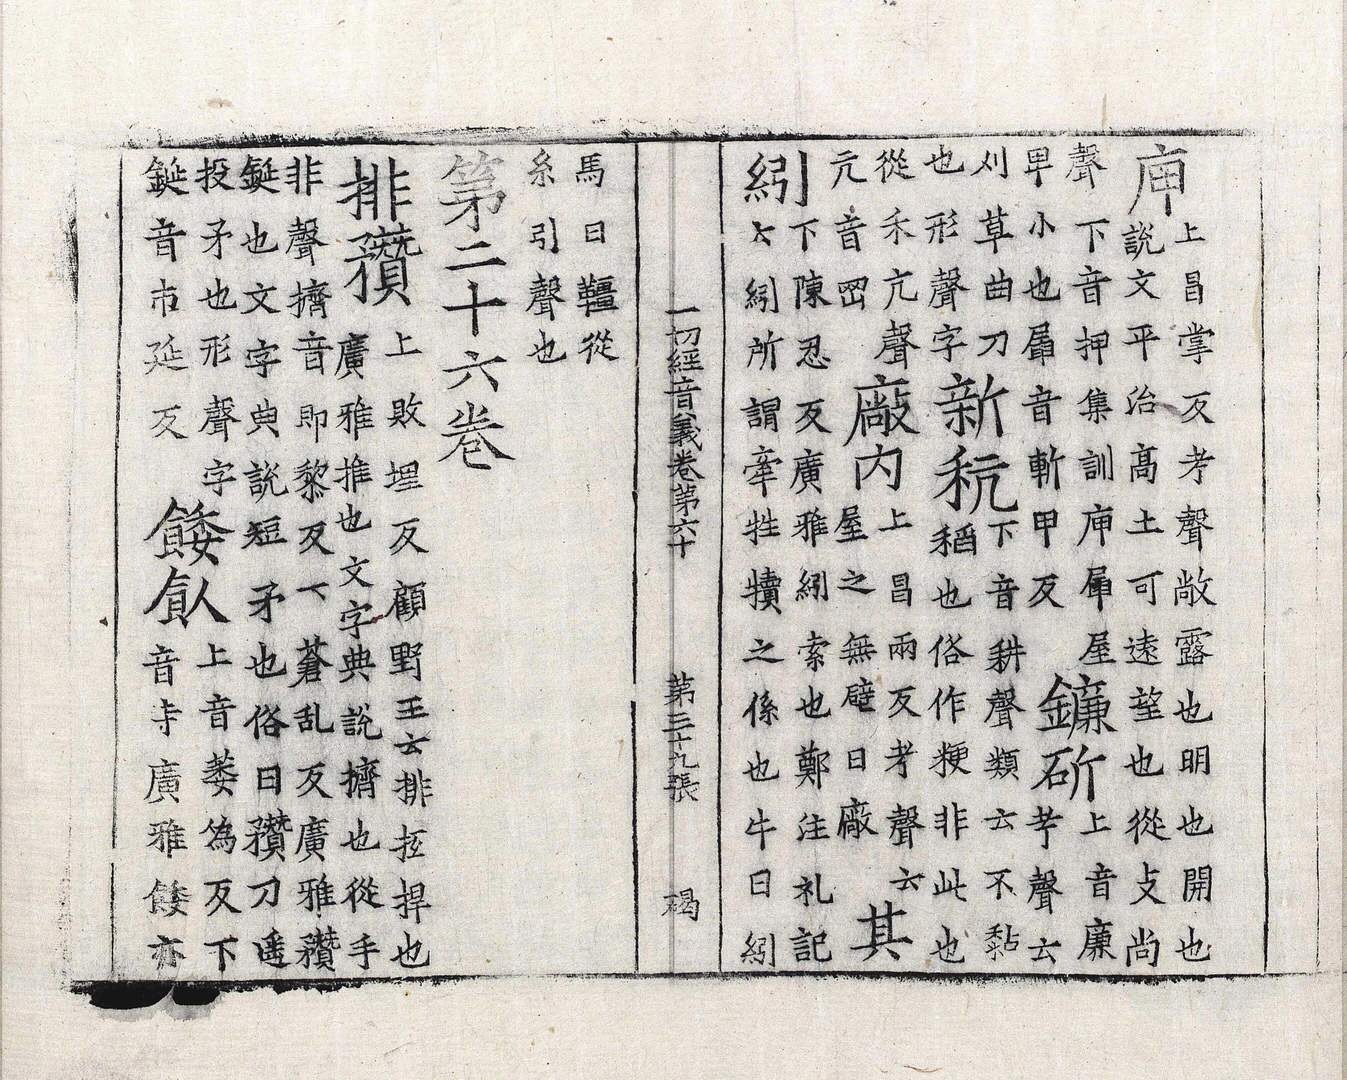 庘上昌掌反考聲敞露也明也開也說文平治髙土可遠望也從攴尚
聲下音押集訓庘屋卑小也音斬甲反鐮斫上音廉聲云
刈草曲刀也形聲字新秔下音耕聲類云不黏稻也俗作粳非此也
從禾亢聲亢音罡廠内上昌兩反考聲云屋之無壁曰廠其
紖下陳忍反廣雅紖索也鄭注礼記云紖所謂牽牲犢之係也牛曰紖
一切經音義卷第六十　第三十九張　碣
馬曰韁從糸引聲也
第二十六卷
排穳上敗埋反顧野王云排抂捍也廣雅推也文字典說擠也從手
非聲擠音即黎反下蒼乱反廣雅穳鋋也文字典說短矛也俗曰穳刀遥
投矛也形聲字鋋音市延反餧飤上音萎為反下音寺廣雅餧亦